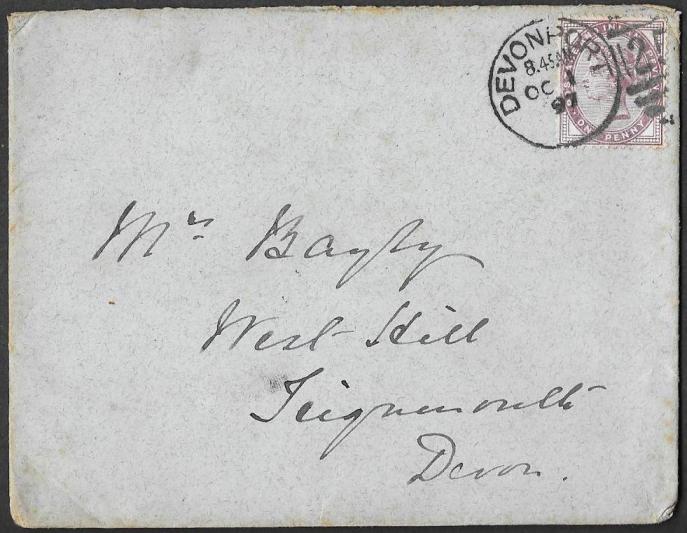 DEVONPORT
8.45AM
OC 1
97
ONE PENNY
Mrs Bayly
West Hill
Teignmouth
Devon.